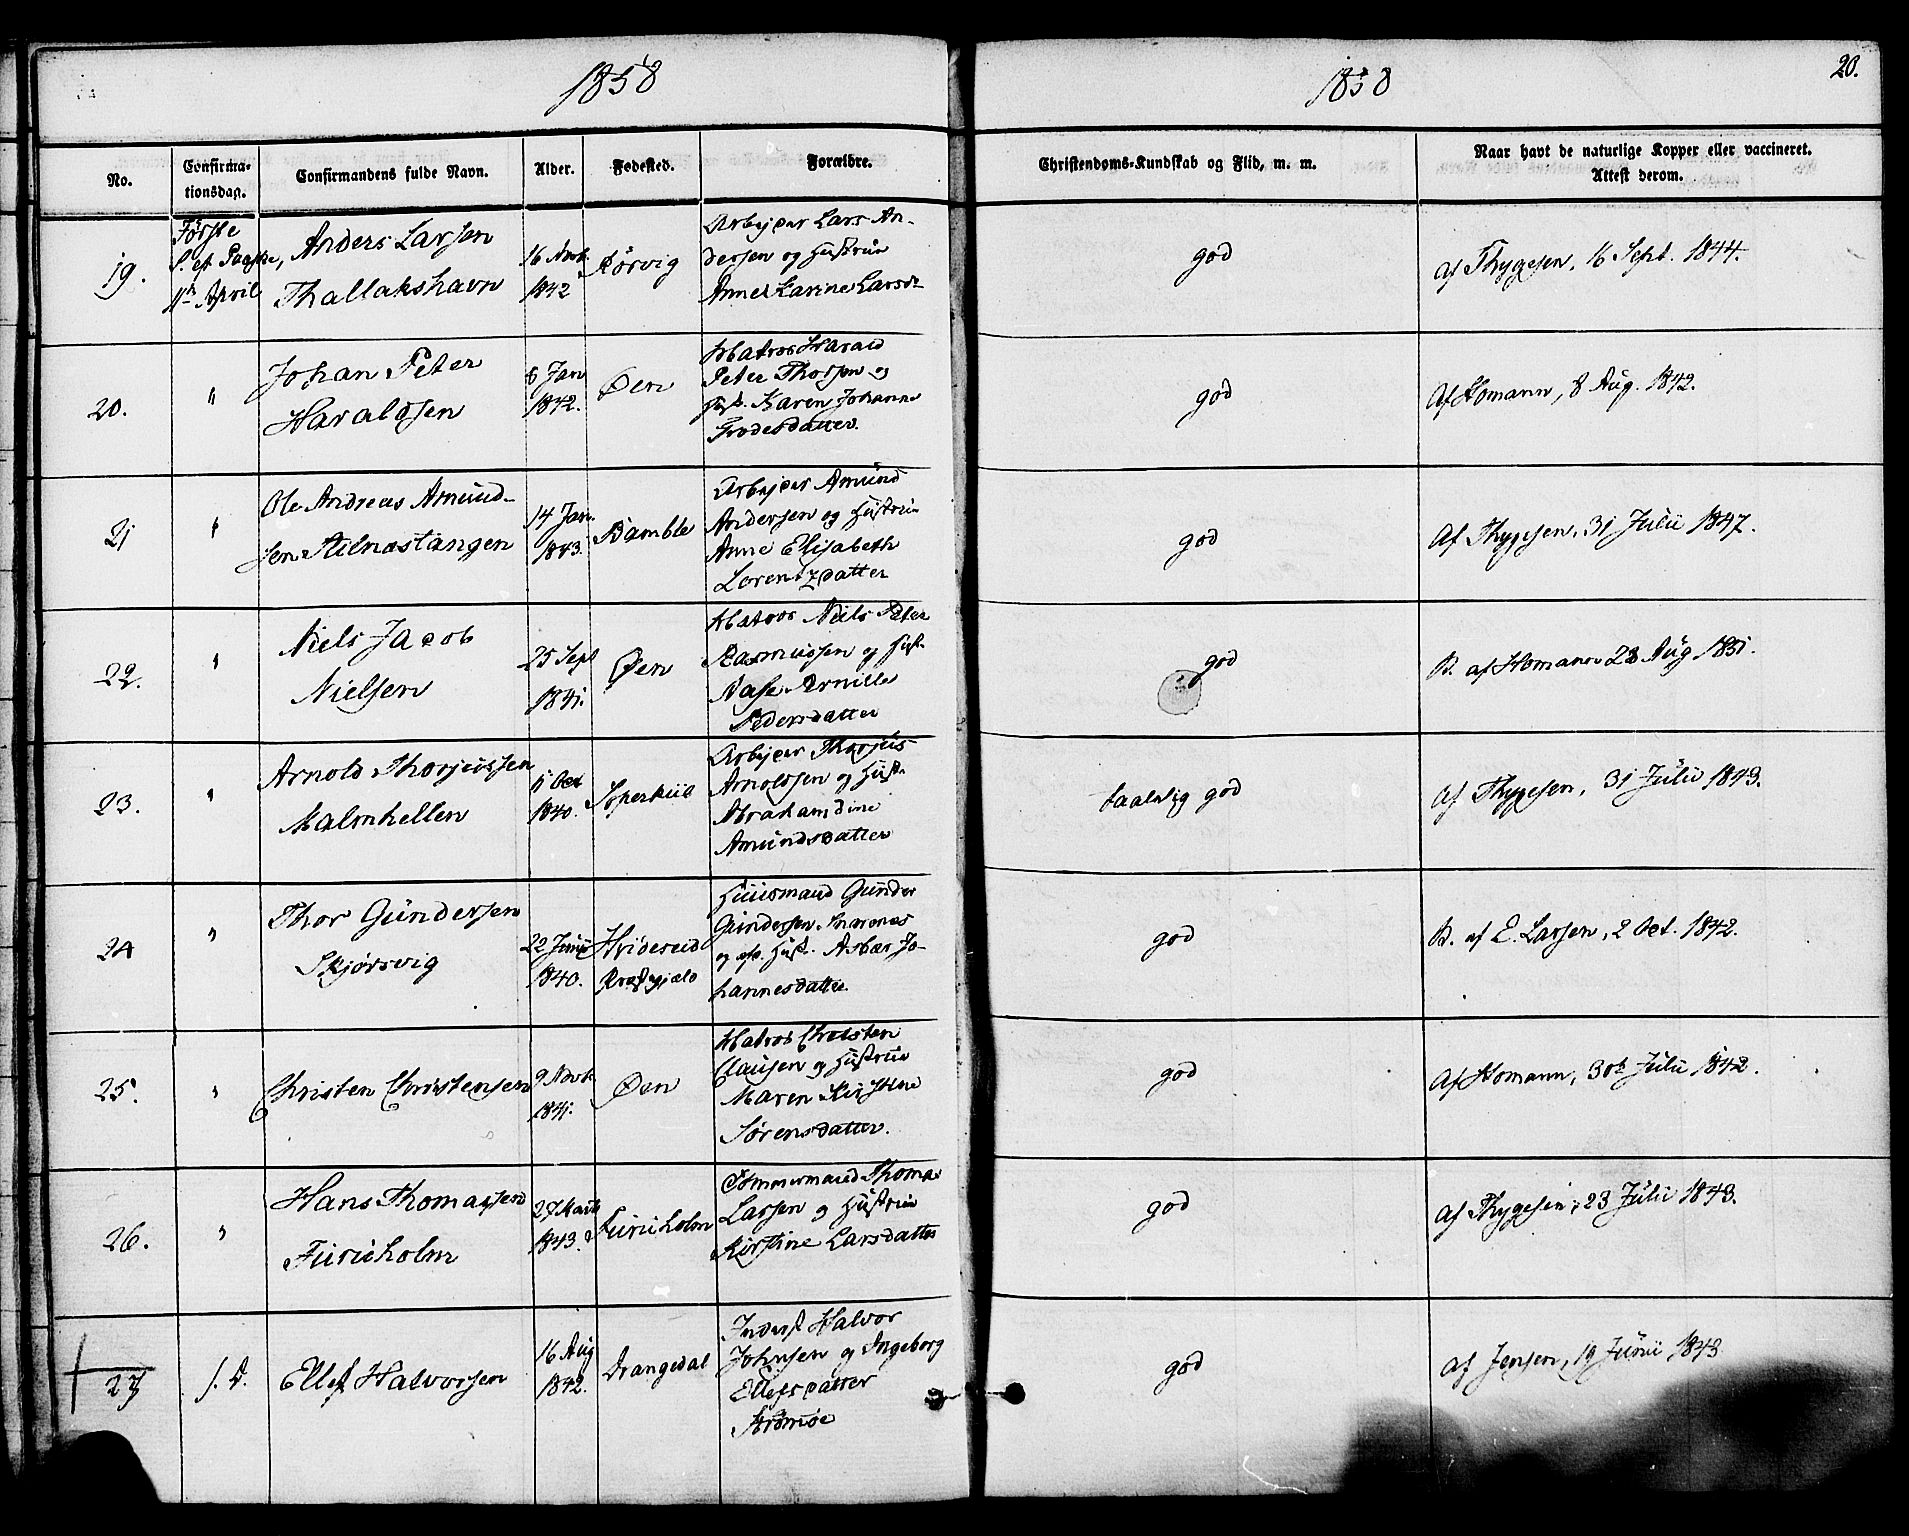 1858
1858
20.
No.
Confirma-
tionsdag.
Confirmandens fulde Navn.
Alder.
Fødested.
Forældre.
Christendoms-Kundskab og Flid, m. m.
Naar havt de naturlige Kopper eller vaccineret.
Attest derom.
19.
Første
S. ef. Paaske,
11te April
Anders Larsen
Thallakshavn
16 Novb.
1842
Kørvig
Arbejder Lars An-
dersen og Hustrue
Anne Karine Larsd.
god
af Thygesen, 16 Sept. 1844.
20.
"
Johan Peter
Haraldsen
8 Jan
1842.
Øen
Matros Harald
Peter Thorsen og
Hust. Karen Johanne
Frodesdatter.
god
Af Homann, 8 Aug. 1842.
21
"
Ole Andreas Amund-
sen Stilnæstangen
14 Jan.
1843.
Bamble
Arbejder Amund
Andersen og Hustrue
Anne Elisabeth
Lorentzdatter
god
Af Thygesen, 31 Julii 1847.
22.
"
Niels Jacob
Nielsen
25 Sept
1841.
Øen
Matros Niels Peter
Rasmussen og Hust.
Aase Pernille
Pedersdatter
god
B. af Homann 28 Aug 1851.
23.
"
Arnold Thorjussen
Malmhellen
11 Oct
1840.
Soperkiil
Arbejder Thorjus
Arnoldsen og Hust.
Abrahamdine
Amundsdatter
taalelig god
Af Thygesen, 31 Julii 1843.
24
"
Thor Gundersen
Skjørsvig
22 Junii
1840.
Hvidereid
Præstegjæld
Huusmand Gunder
Gundersen
og Hust. Asbør Jo-
hannesdatter.
god
B. af E. Larsen, 2 Oct. 1842.
25.
"
Christen Christensen
9 Novb.
1841.
Øen
Matros Christen
Clausen og Hustrue
Maren Kirstine
Sørensdatter.
god
Af Homann, 30te Julii 1842.
26.
"
Hans Thomassen
Furuholm
27 Marts
1843.
Furuholm
Tømmermand Thomas
Larsen og Hustrue
Kirstine Larsdatter
god
Af Thygesen, 23 Julii 1843.
27
s. D.
Ellef Halvorsen
16 Aug
1842.
Drangedal
Inderst Halvor
Johnsen og Ingeborg
Ellefsdatter
Strømøe
god
Af Jensen, 19 Junii 1843